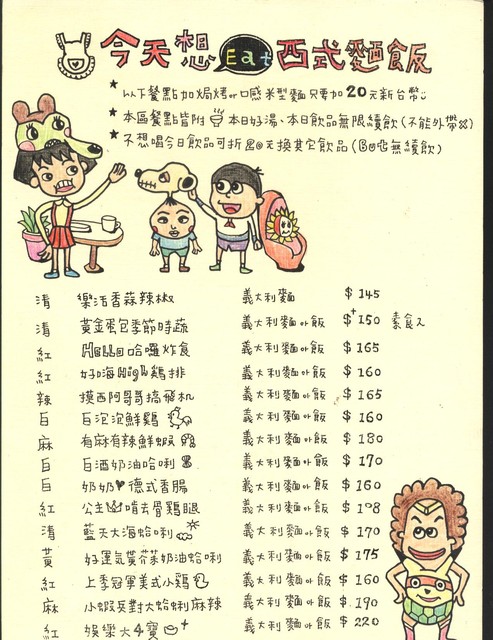 今天想 Eat 西式麵飯
★以下餐點加焗烤or口感米型麵 只要加20元新台幣
★本區餐點皆附 本日好湯、本日飲品無限續飲(不能外帶)
★不想喝今日飲品可折 元換其它飲品( 無續飲)
清 樂活香蒜辣椒 義大利麵 $145
清 黃金蛋包季節時蔬 義大利麵or飯 $150 素食
紅 Hello哈囉炸食 義大利麵or飯 $165
紅 好嗨High雞排 義大利麵or飯 $160
辣 摸西阿哥搞飛机 義大利麵or飯 $165
白 白泡泡鮮雞 義大利麵or飯 $160
麻 有麻有辣鮮蝦 義大利麵or飯 $180
白 白酒奶油哈唎 義大利麵or飯 $170
白 奶奶♥德式香腸 義大利麵or飯 $160
紅 公主 啃去骨雞腿 義大利麵or飯 $198
清 藍天大海蛤唎 義大利麵or飯 $170
黃 好運氣黃芥茉奶油蛤唎 義大利麵or飯 $175
紅 上季冠軍美式小雞 義大利麵or飯 $160
麻 小蝦兵對大蛤蜊麻辣 義大利麵or飯 $190
紅 娛樂大4寶 義大利麵or飯 $220